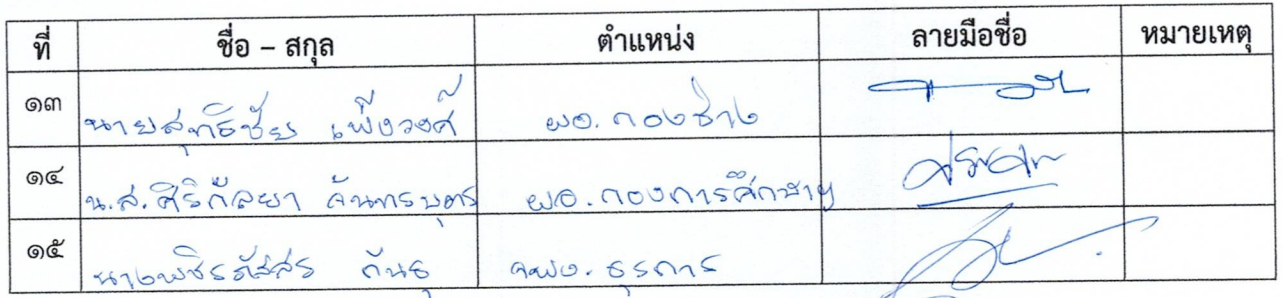 ที่ ชื่อ – สกุล ตำแหน่ง ลายมือชื่อ หมายเหตุ
๑๓ นายสุทธิชัย เพ็งวงศ์ ผอ. กองช่าง
๑๔ น.ส. ศิริกัลยา จันทรบุตร ผอ. กองการศึกษาฯ
๑๕ นางพชิรรัสสร กันธุ จพง. ธุรการ